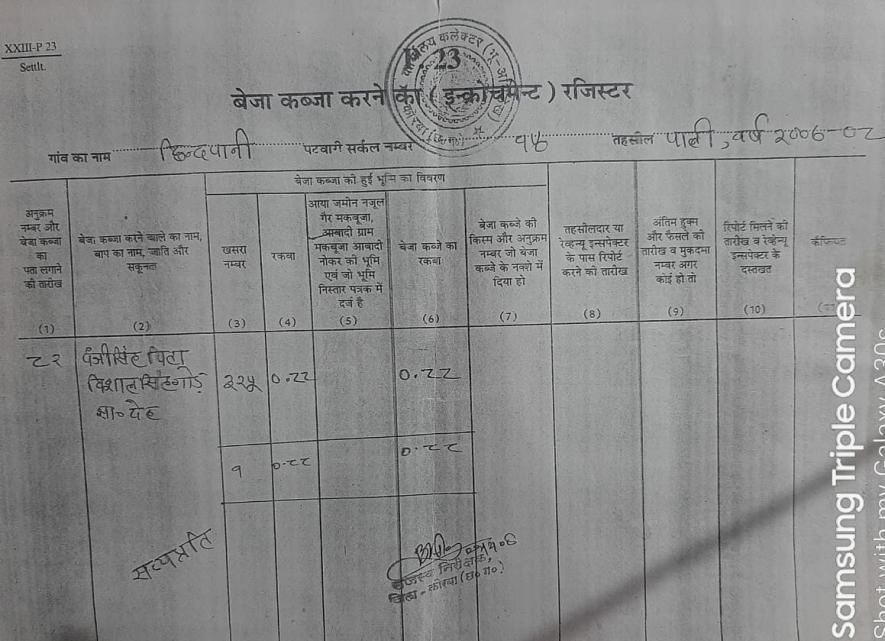 XXIII-P 23
Settlt.
23
बेजा कब्जा करने का ( इन्क्रोचमेन्ट ) रजिस्टर
गांव का नाम छिन्दपानी पटवारी सर्कल नम्बर १५ तहसील पाली, वर्ष २००६-०७
बेजा कब्जा की हुई भूमि का विवरण
अनुक्रम नम्बर और बेजा कब्जा का पता लगाने की तारीख
बेजा कब्जा करने वाले का नाम, बाप का नाम, जाति और सकूनत
खसरा नम्बर
रकवा
आया जमीन नजूल गैर मकबूजा, आबादी ग्राम मकबूजा आबादी नोकर की भूमि एवं जो भूमि निस्तार पत्रक में दर्ज है
बेजा कब्जे का रकवा
बेजा कब्जे की किस्म और अनुक्रम नम्बर जो बेजा कब्जे के नक्शे में दिया हो
तहसीलदार या रेव्हन्यू इन्सपेक्टर के पास रिपोर्ट करने की तारीख
अंतिम हुक्म और फैसले की तारीख व मुकदमा नम्बर अगर कोई हो तो
रिपोर्ट मिलने की तारीख व रेव्हेन्यू इन्सपेक्टर के दस्तखत
कैफियत
(1) (2) (3) (4) (5) (6) (7) (8) (9) (10)
८२ पंजीसिंह पिता
विशालसिंह गोंड़ ३२५ 0.८८ 0.८८
सा० देह
१ 0.८८ 0.८८
सत्यप्रति
राजस्व निरीक्षक,
जिला - कोरबा (छ० ग०)
Samsung Triple Camera
Shot with my Galaxy A30s